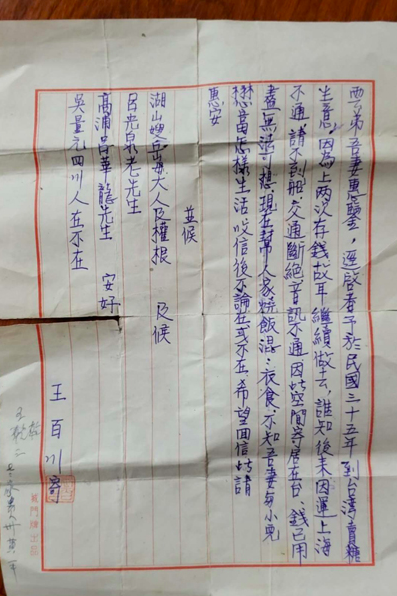 吾妻惠鑒，逕啓者予於民國三十五年到台灣賣糖
生意，因為上兩次存錢故耳繼續做去，誰知後來因運上海
不通請不到船，交通斷絕音訊不通因此空間寄居在台、錢已用
盡無法可想，現在幫人家燒飯混：衣食，不知吾妻與小兒
怎樣生活，收信後不論在或不在，希望回信此請
惠安
並候
湖山岳母大人及權根 及候
呂光泉老先生
高浦呂華龍先生 安好
吳量元四川人在不在
王百川寄